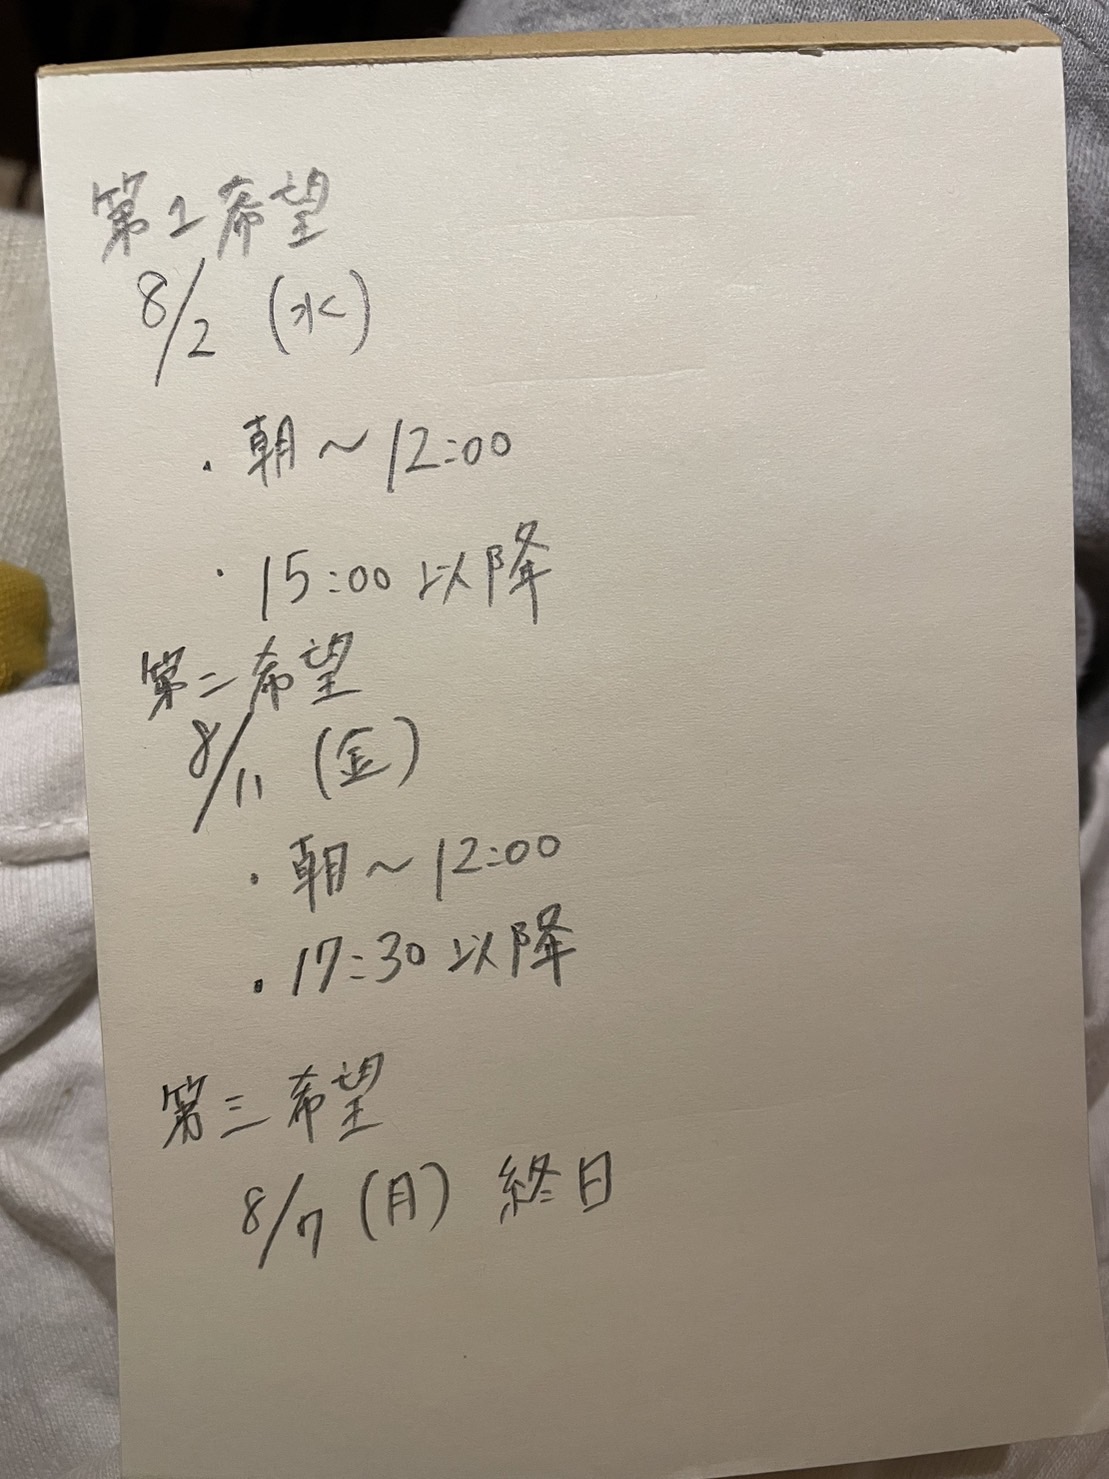 第1希望
8/2 (水)
・朝～12:00
・15:00以降
第二希望
8/11 (金)
・朝～12:00
・17:30以降
第三希望
8/7 (月) 終日